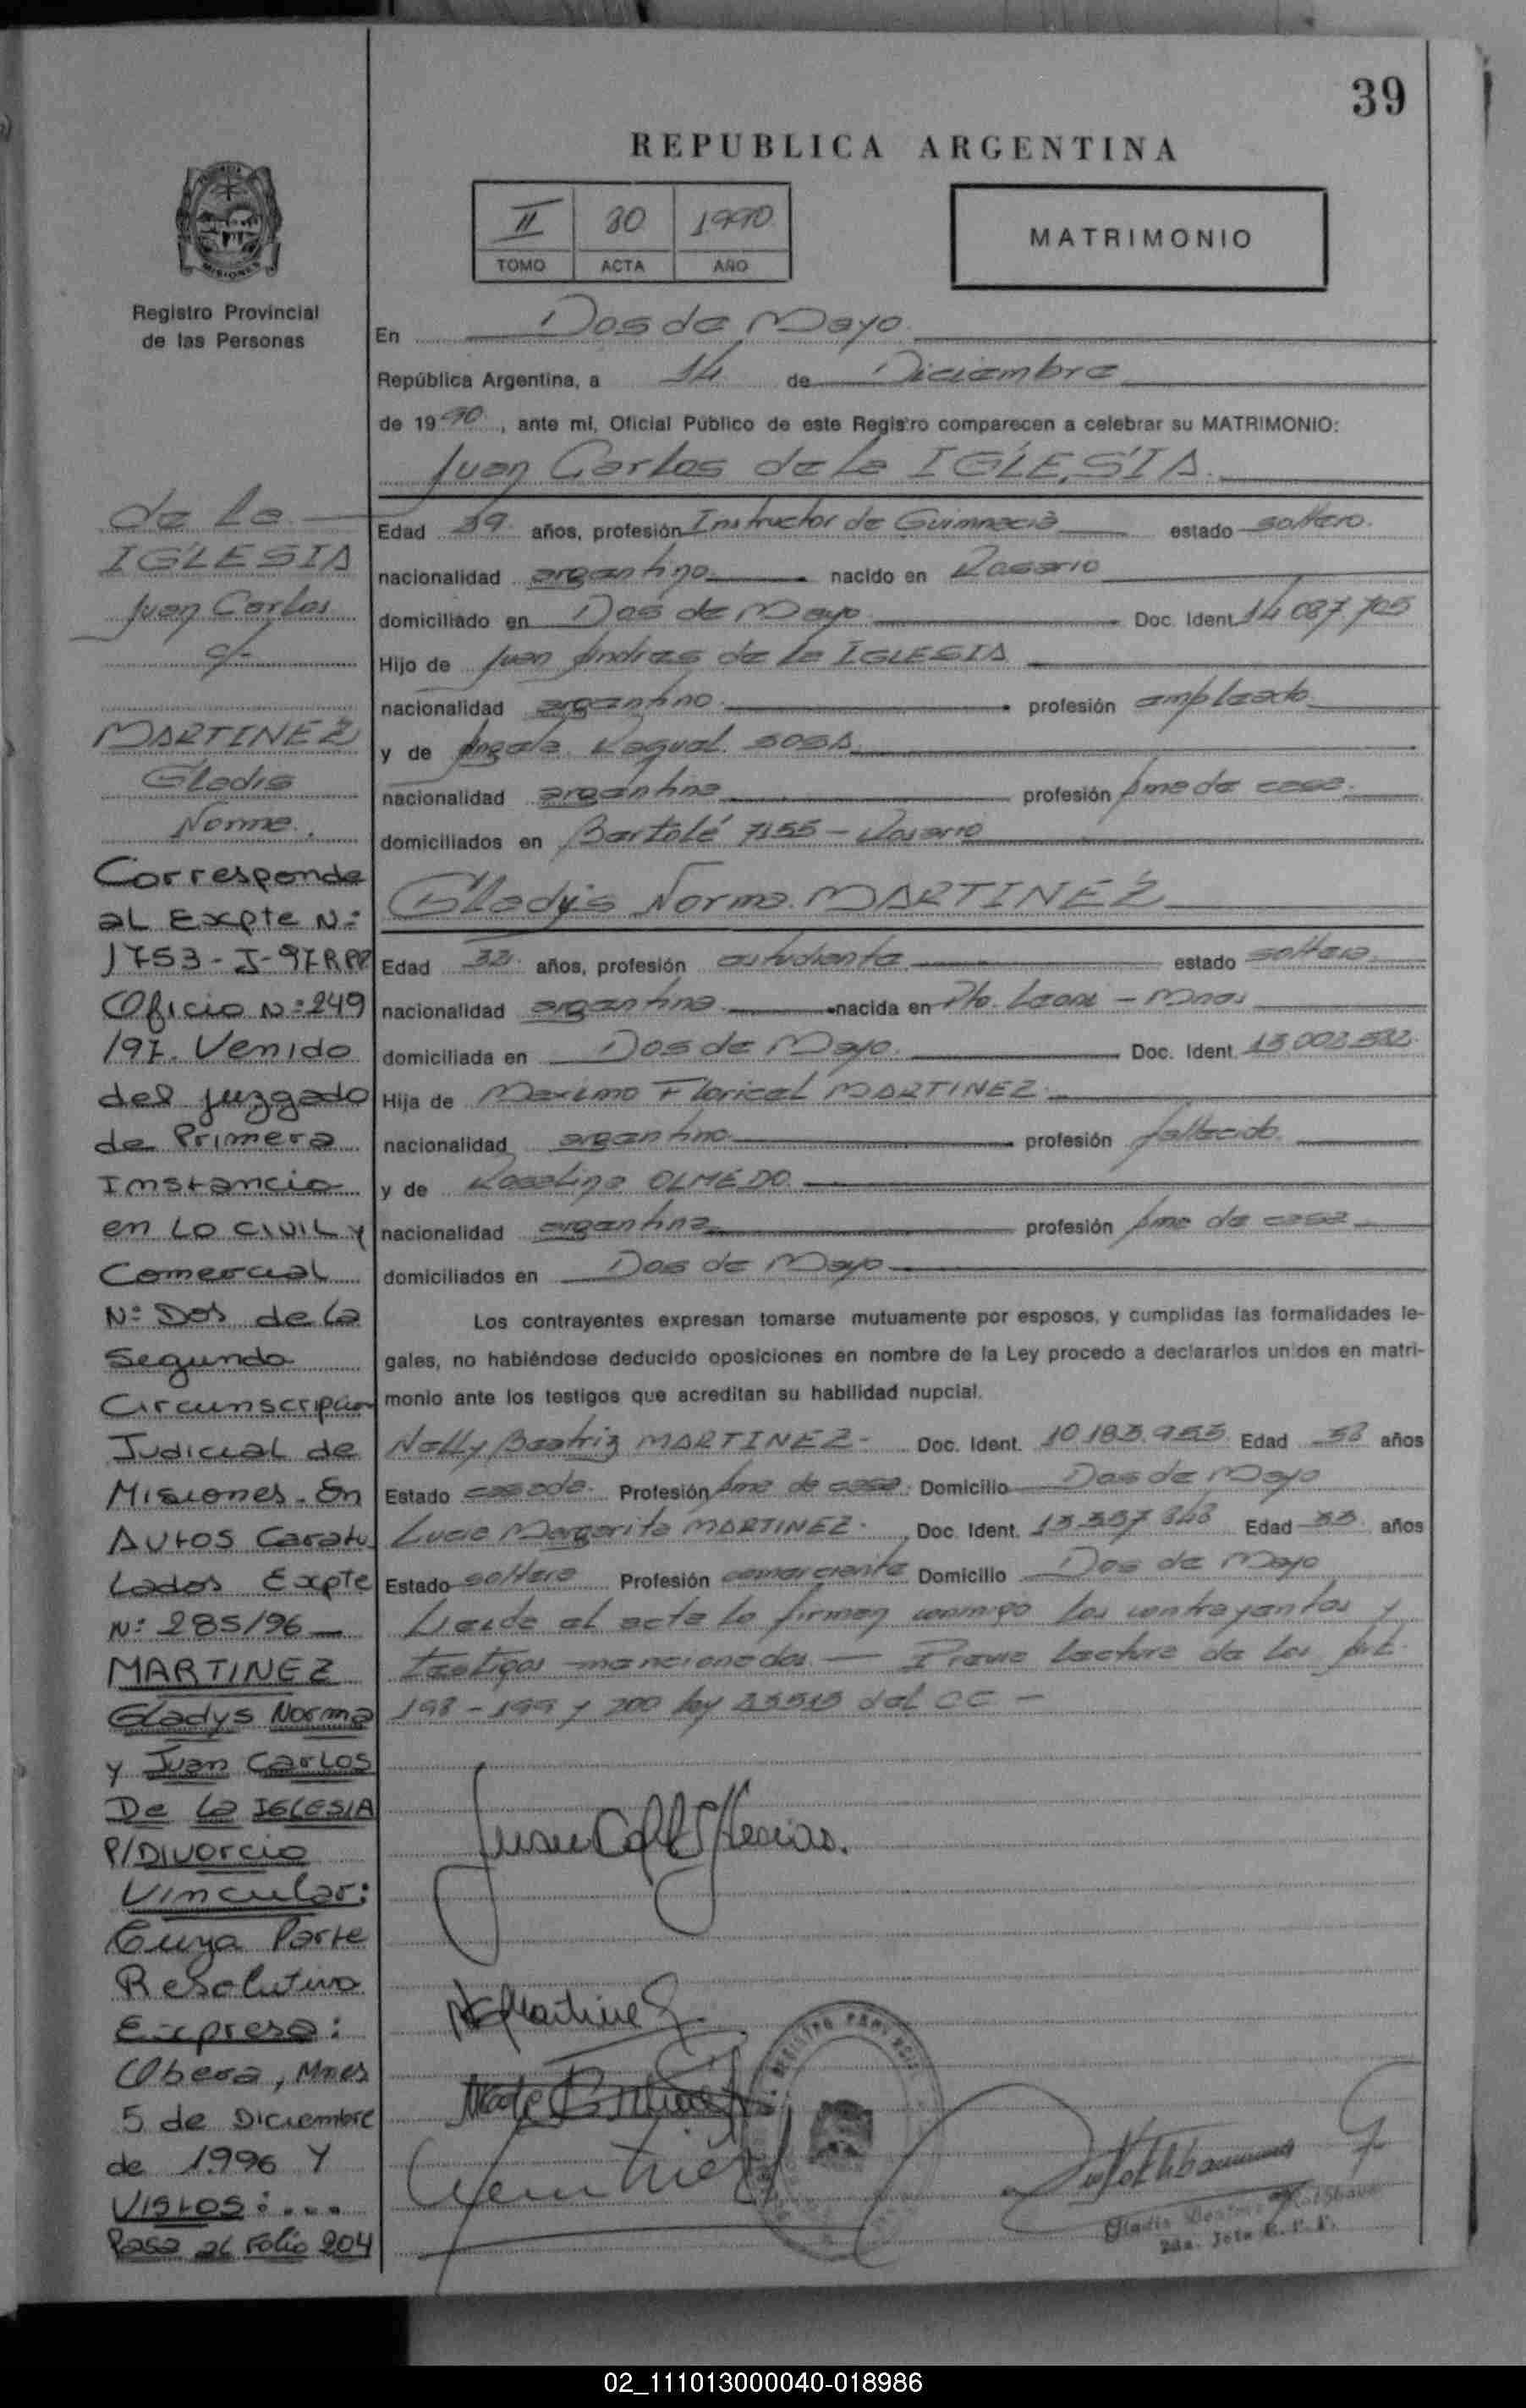 39
REPUBLICA ARGENTINA
II 30 1990
TOMO ACTA AÑO
MATRIMONIO
MISIONES
Registro Provincial
de las Personas
En Dos de Mayo
República Argentina, a 14 de Diciembre
de 1990, ante mi, Oficial Público de este Registro comparecen a celebrar su MATRIMONIO:
Juan Carlos de la IGLESIA
Edad 39 años, profesión Instructor de Guimnacia estado soltero.
nacionalidad argentino nacido en Rosario
domiciliado en Dos de Mayo Doc. Ident. 14 087.705
Hijo de Juan Andres de la IGLESIA
nacionalidad argentino profesión empleado
y de Angela Raquel SOSA
nacionalidad argentina profesión Ama de casa.
domiciliados en Bartolé 7155 - Rosario
Gladys Norma MARTINEZ
Edad 32 años, profesión estudiante estado soltera
nacionalidad argentina nacida en Pto. Leoni - Mnes
domiciliada en Dos de Mayo. Doc. Ident. 13.002.532
Hija de Maximo Florical MARTINEZ
nacionalidad argentino profesión fallecido
y de Rosalina OLMEDO
nacionalidad argentina profesión Ama de casa
domiciliados en Dos de Mayo
Los contrayentes expresan tomarse mutuamente por esposos, y cumplidas las formalidades le-
gales, no habiéndose deducido oposiciones en nombre de la Ley procedo a declararlos unidos en matri-
monio ante los testigos que acreditan su habilidad nupcial.
Nelly Beatriz MARTINEZ - Doc. Ident. 10 183.953 Edad 38 años
Estado casada. Profesión Ama de casa. Domicilio Dos de Mayo
Lucia Margarita MARTINEZ. Doc. Ident. 13.357 848 Edad 33 años
Estado soltera Profesión comerciante Domicilio Dos de Mayo
Leida el acta la firman conmigo los contrayentes y
testigos mencionados. — Previa lectura de los Art.
198 - 199 y 200 ley 23515 del CC -
de la
IGLESIA
Juan Carlos
c/
MARTINEZ
Gladis
Norma.
Corresponde
al Expte N:
1753-J-97RPP
Oficio N:249
/97. Venido
del juzgado
de Primera
Imstancia
en Lo CIVIL y
Comercial
N: Dos de la
Segunda
Circunscripcion
Judicial de
Misiones. En
Autos Caratu
lados Expte
N: 285/96 -
MARTINEZ
Gladys Norma
y Juan Carlos
De la IGLESIA
P/Divorcio
Vincular:
Cuya Parte
Resolutiva
Expresa:
Obera, Mnes
5 de Diciembre
de 1.996 Y
Vistos:...
Pasa al Folio 204
2da. Jefe R. P. P.
02_111013000040-018986